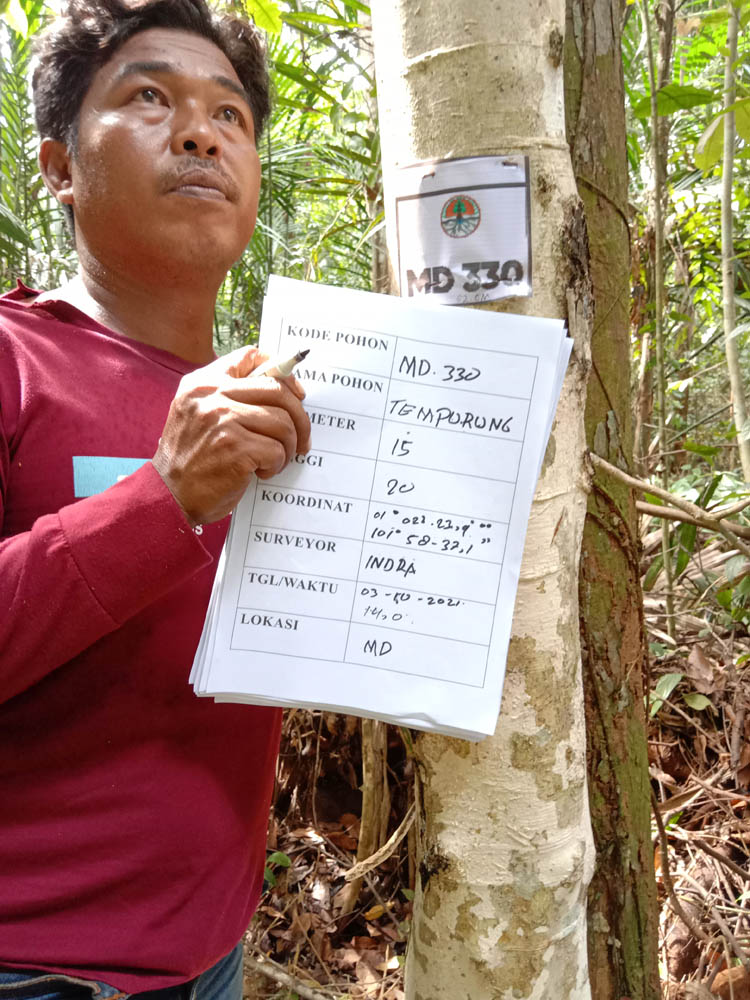 MD 330
KODE POHON MD. 330
AMA POHON TEMPURUNG
METER 15
GGI 20
KOORDINAT 01° 022. 23,9""
101° 58-37,1"
SURVEYOR INDRA
TGL/WAKTU 03 - 10 - 2021.
14,0.
LOKASI MD